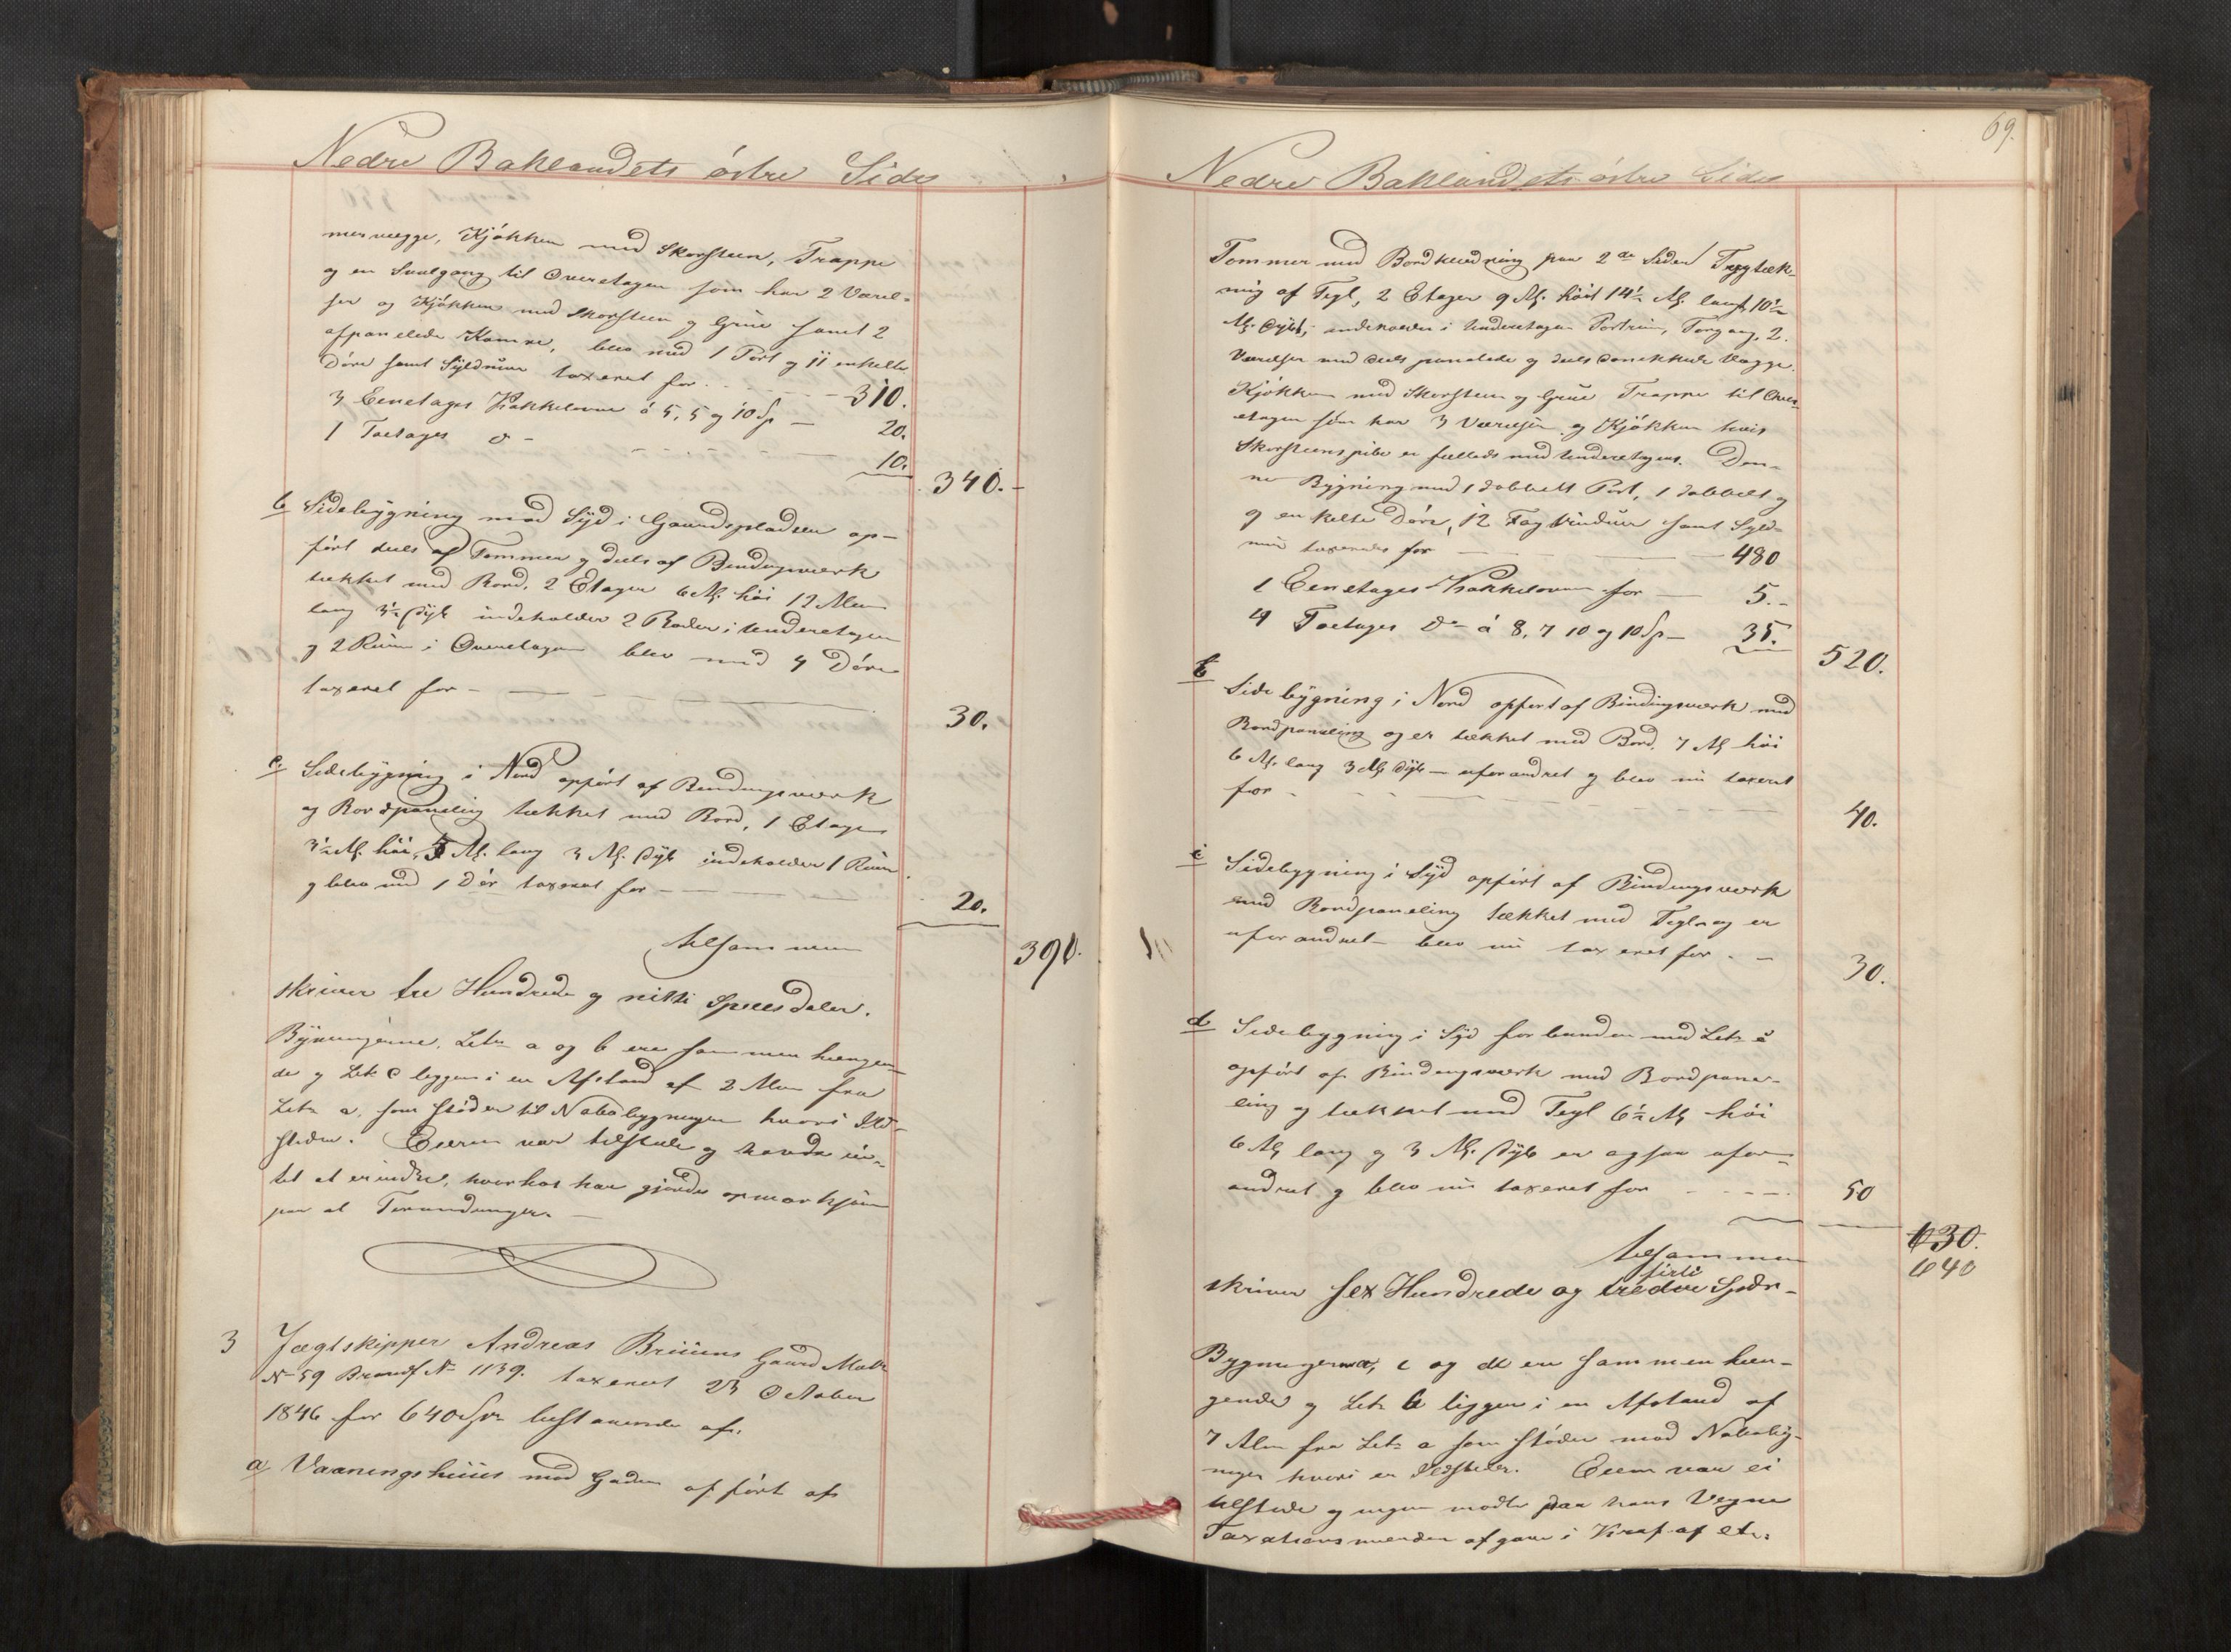 Nedre Baklandets östre Side
mervægge, Kjøkken med Skorsteen, Trappe
og en Svalgang til Overetagen som har 2 Værel-
ser og Kjøkken med Skorsteen og Grue samt 2
afpanelede Kamre, blev med 1 Port og 11 enkelte
Döre samt Syldmuur taxeret for 310.
3 Eenetages Kakkelovne á 5, 5 og 10 Sp — 20.
1 Toetages do — 10.
340.-
b Sidebygning mod Syd i Gaardspladsen op-
fört deels af Tømmer og deels af Bindingsværk
tækket med Bord, 2 Etager 6 Al. höi 12 Alen
lang 3½ dyb indeholder 2 Boder i Underetagen
og 2 Rum i Overetagen blev med 4 Döre
taxeret for — 30.
c. Sidebygning i Nord opfört af Bindingsværk
og Bordpaneling tækket med Bord, 1 Etage
3½ Al. höi, 5 Al. lang 3 Al. dyb indeholder 1 Rum
og blev med 1 Dör taxeret for — 20.
tilsammen 390.
skriver tre Hundrede og nitti Speciesdaler.
Bygningerne, Litr a og b ere sammenhængen-
de og Litr c ligger i en Afstand af 2 Alen fra
Litr a, som stöder til Nabobygningen hvori Ild-
steder. Eieren var tilstede og havde in-
tet at erindre, hvorhos han gjordes opmærksom
paa at
3 Jægtskipper Andreas Bruuns Gaard Matr
No 59 Brandf No 1139. taxeret 23 October
1846 for 640 Spd bestaaende af:
a Vaaningshuus mod Gaden opfört af
69.
Nedre Baklandets östre Side
Tømmer med Bordklædning paa 2de Sider Tagtæk-
ning af Tegl, 2 Etager 9 Al. höit 14½ Al. langt 10½
Al. dybt, indeholder i Underetagen Portrum, Forgang, 2
Værelser med deels panelede og deels Vægge.
Kjøkken med Skorsteen og Grue Trappe til Over-
etagen som har 3 Værelser og Kjøkken hvis
Skorsteenspibe er fælleds med Underetagens. Den-
ne Bygning med 1 dobbelt Port, 1 dobbelt og
9 enkelte Döre, 12 Fag Vinduer samt Syld-
muur taxeredes for — 480
1 Eenetages Kakkelovn for — 5.-
4 Toetages Do á 8, 7 10 og 10 Sp — 35.
520.
b Sidebygning i Nord opfört af Bindingsværk med
Bordpaneling og er tækket med Bord, 7 Al höi
6 Al. lang 3 Al. dyb — uforandret og blev nu taxeret
for — 40.
c Sidebygning i Syd opfört af Bindingsværk
med Bordpaneling tækket med Tegl og er
uforandret — blev nu taxeret for — 30.
d Sidebygning i Syd forbunden med Litr c
opfört af Bindingsværk med Bordpane-
ling og tækket med Tegl 6½ Al höi
6 Al lang og 3 Al. dyb er ogsaa ufor-
andret og blev nu taxeret for — 50
630.
tilsammen 640
firti
skriver sex Hundrede og tredve Spdr-
Bygningerne a, c og d ere sammenhæn-
gende og Litr b ligger i en Afstand af
7 Alen fra Litr a som stöder mod Nabobyg-
ningen hvori er Ildsteder. Eieren var ei
tilstede og ingen mödte paa hans Vegne
Taxationsmænden afgave i Kraft af etc.